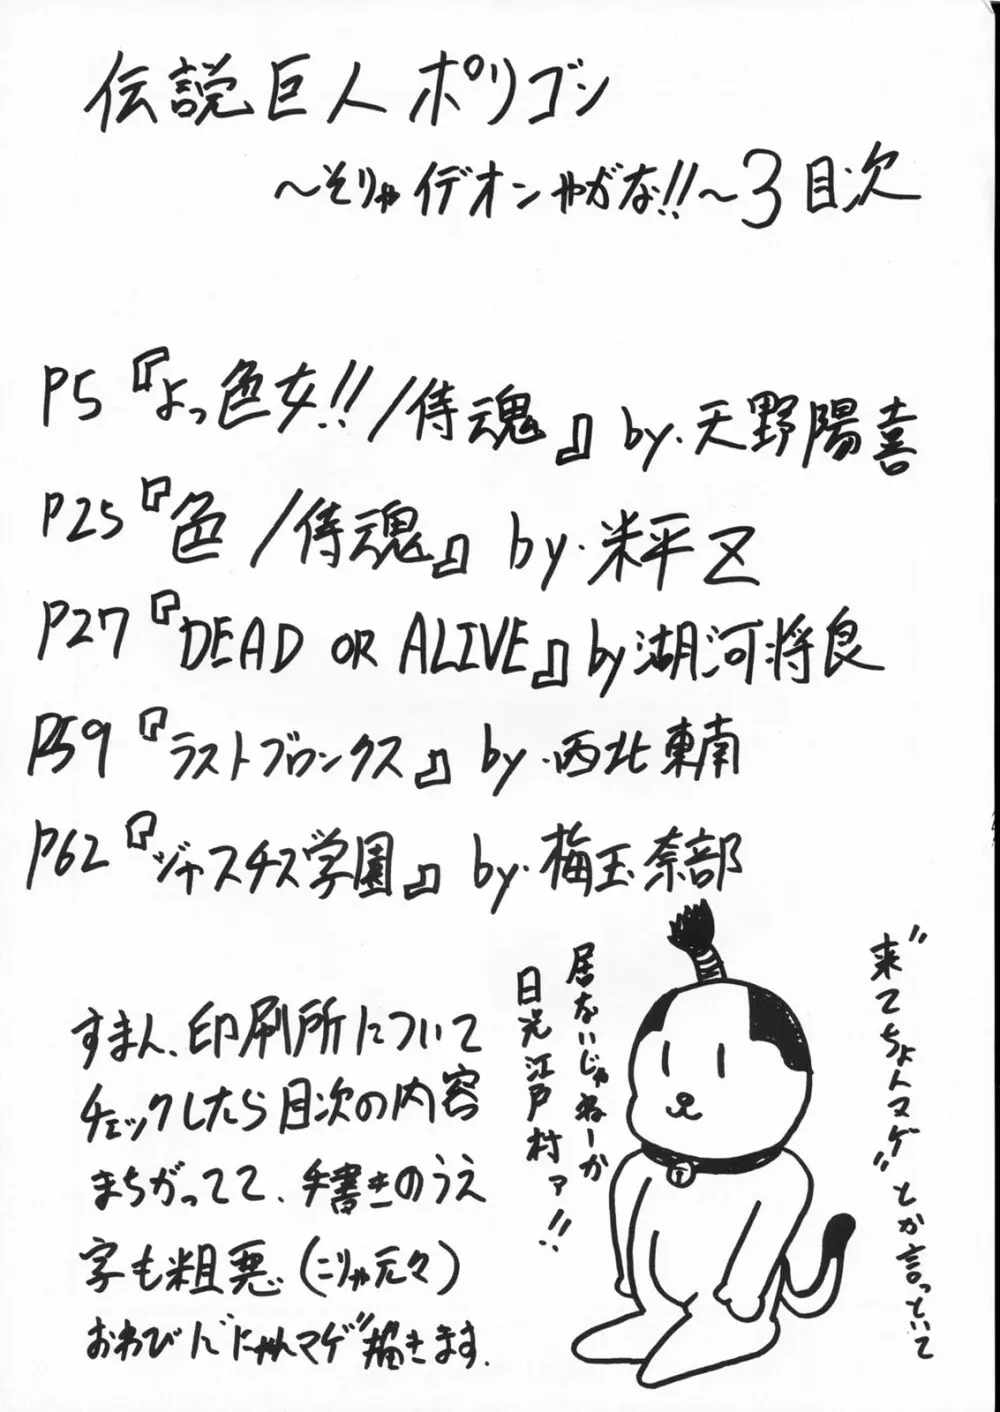 伝説巨人ポリゴン
～そりゃイデオンやがな!!～3 目次
P5『よっ色女!!/侍魂』by.天野陽喜
P25『色/侍魂』by.米平乙
P27『DEAD OR ALIVE』by湖河将良
P59『ラストブロンクス』by.西北東南
P62『ジャスチス学園』by.梅玉奈部
すまん、印刷所について
チェックしたら目次の内容
まちがってて、手書きのうえ
字も粗悪(こりゃ元々)
おわびに"にゃんマゲ"描きます.
"来てちょんマゲ"とか言っといて
居ないじゃねーか
日光江戸村ァ!!